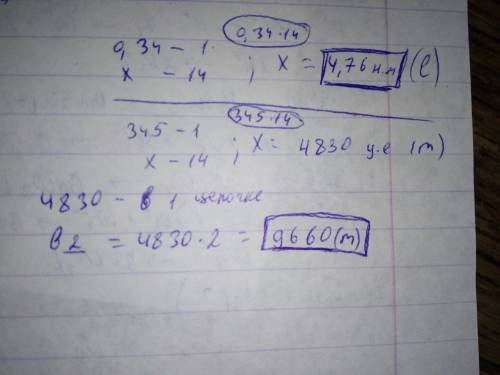 0,34 - 1 0,34·14
x - 14 ; x = 4,76 н.м (l)
345 - 1 345·14
x - 14 ; x = 4830 у.е (m)
4830 - в 1 цепочке
в 2 = 4830·2 = 9660 (m)